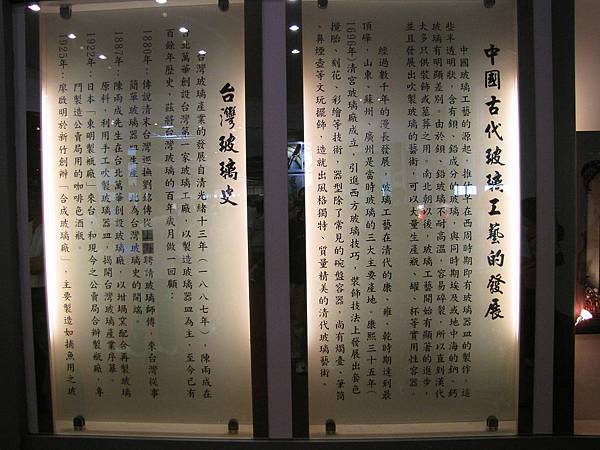 中國古代玻璃工藝的發展
中國玻璃工藝的源起，推估早在西周時期即有玻璃器皿的製作，這
些半透明狀，含有鋇、鉛成分的玻璃，與同時期埃及或地中海的鈉、鈣
玻璃有明顯差別。由於鋇、鉛玻璃不耐高溫、容易碎裂，所以直到漢代
大多只供裝飾或墓葬之用。南北朝以後，玻璃工藝開始有顯著的進步，
並且發展出吹製玻璃的藝術，可以大量生產瓶、罐、杯等實用性容器。
經過數千年的漫長發展，玻璃工藝在清代的康、雍、乾時期達到最
頂峰，山東、蘇州、廣州是當時玻璃的三大主要產地。康熙三十五年（
1696年)清宮玻璃廠成立，引進西方玻璃技巧，裝飾技法上發展出套色
、攪胎、刻花、彩繪等技術，器型除了常見的碗盤容器，尚有燭臺、筆筒
、鼻煙壺等文玩擺飾，造就出風格獨特、質量精美的清代玻璃藝術。
台灣玻璃史
台灣玻璃產業的發展自清光緒十三年（一八八七年），陳兩成在
台北萬華創設台灣第一家玻璃工廠，以製造玻璃器皿為主，至今已有
百餘年歷史，茲將台灣玻璃的百年歲月做一回顧：
1880年：傳說清末台灣巡撫劉銘傳從山東聘請玻璃師傅，來台灣從事
簡單玻璃器皿生產，此為台灣玻璃史的開端。
1887年：陳兩成先生在台北萬華創設玻璃廠，以坩堝窯配合再製玻璃
原料，利用手工吹製玻璃器皿，揭開台灣玻璃產業序幕。
1922年：日本「東明製瓶廠」來台，和現今之公賣局合辦製瓶廠，專
門製造公賣局用的咖啡色酒瓶。
1925年：廖啟明於新竹創辦「合成玻璃廠」，主要製造如捕魚用之玻